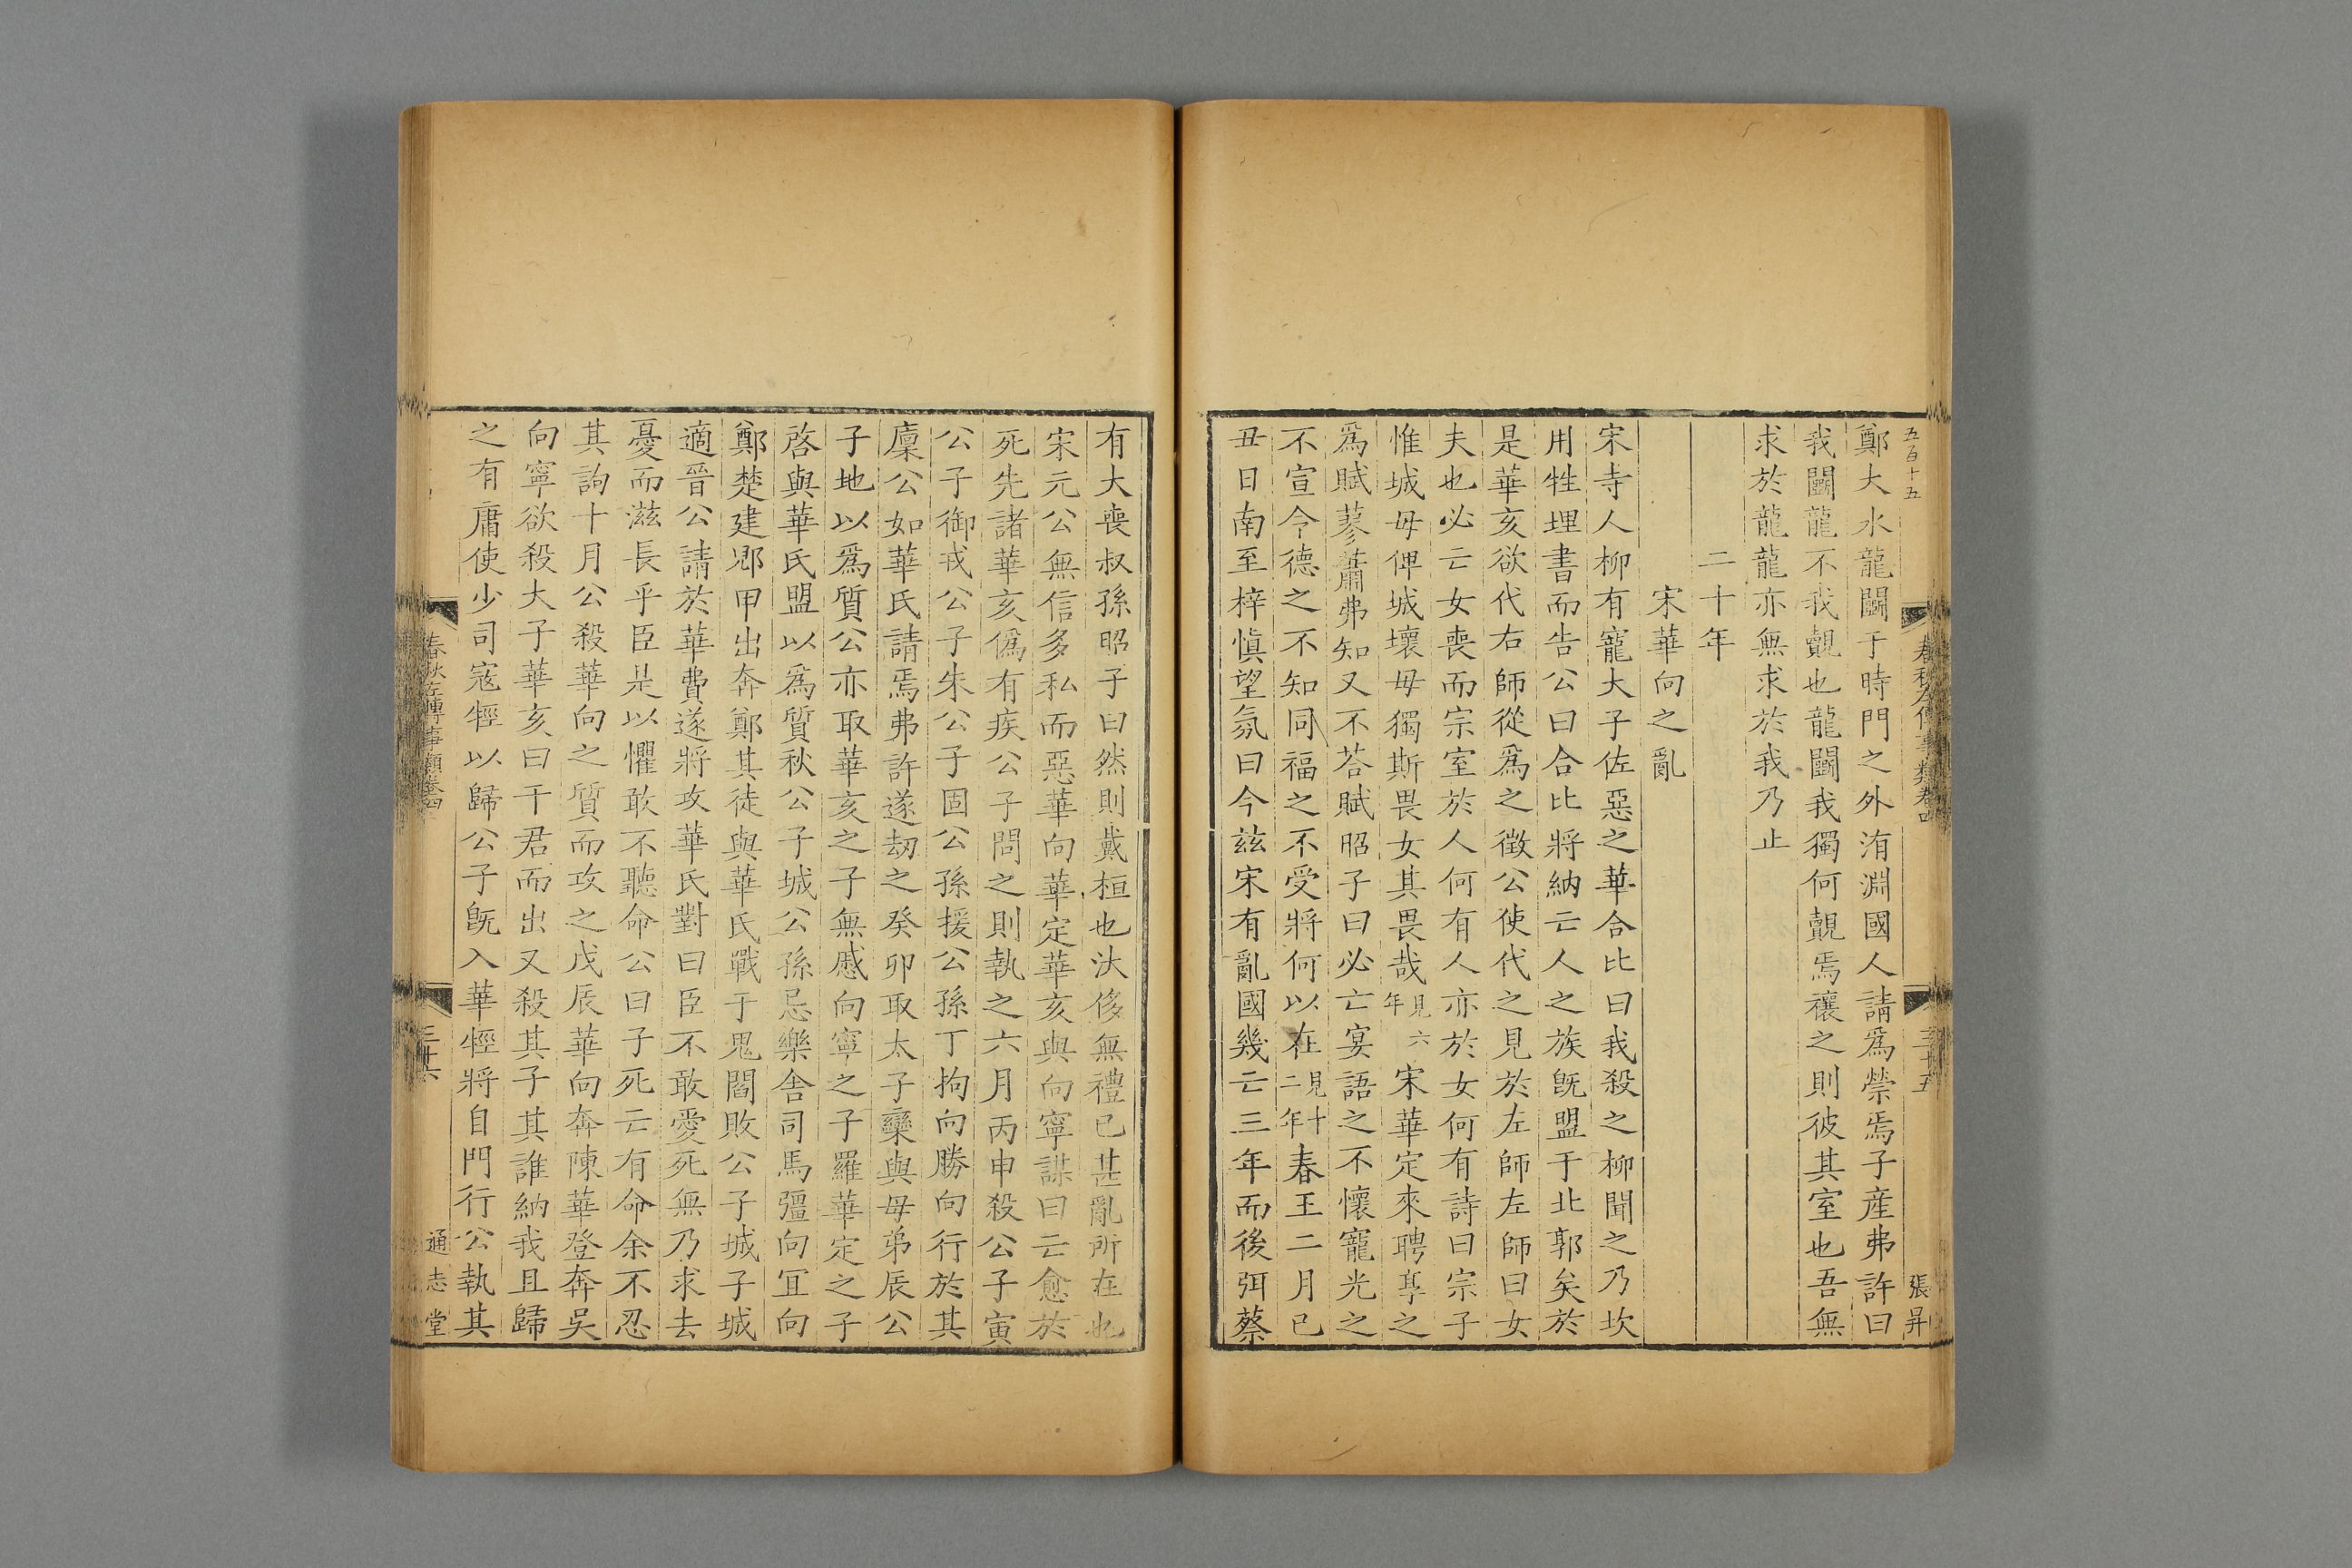 五百十五
春秋左傳事類卷四
三十五
張昇
鄭大水龍鬭于時門之外洧淵國人請爲禜焉子產弗許曰
我鬭龍不我覿也龍鬭我獨何覿焉禳之則彼其室也吾無
求於龍龍亦無求於我乃止
二十年
宋華向之亂
宋寺人柳有寵大子佐惡之華合比曰我殺之柳聞之乃坎
用牲埋書而告公曰合比將納亡人之族旣盟于北郭矣於
是華亥欲代右師從爲之徵公使代之見於左師左師曰女
夫也必亡女喪而宗室於人何有人亦於女何有詩曰宗子
惟城毋俾城壞毋獨斯畏女其畏哉見六年宋華定來聘享之
爲賦蓼蕭弗知又不荅賦昭子曰必亡宴語之不懷寵光之
不宣令德之不知同福之不受將何以在見十二年春王二月己
丑日南至梓慎望氛曰今兹宋有亂國幾亡三年而後弭蔡
有大喪叔孫昭子曰然則戴桓也汰侈無禮已甚亂所在也
宋元公無信多私而惡華向華定華亥與向寧謀曰亡愈於
死先諸華亥僞有疾公子問之則執之六月丙申殺公子寅
公子御戎公子朱公子固公孫援公孫丁拘向勝向行於其
廩公如華氏請焉弗許遂刼之癸卯取太子欒與母弟辰公
子地以爲質公亦取華亥之子無慼向寧之子羅華定之子
啓與華氏盟以爲質秋公子城公孫忌樂舍司馬彊向宜向
鄭楚建郳甲出奔鄭其徒與華氏戰于鬼閻敗公子城子城
適晉公請於華費遂將攻華氏對曰臣不敢愛死無乃求去
憂而滋長乎臣是以懼敢不聽命公曰子死亡有命余不忍
其訽十月公殺華向之質而攻之戊辰華向奔陳華登奔吳
向寧欲殺大子華亥曰干君而出又殺其子其誰納我且歸
之有庸使少司寇牼以歸公子旣入華牼將自門行公執其
春秋左傳事類卷四
三十六
通志堂